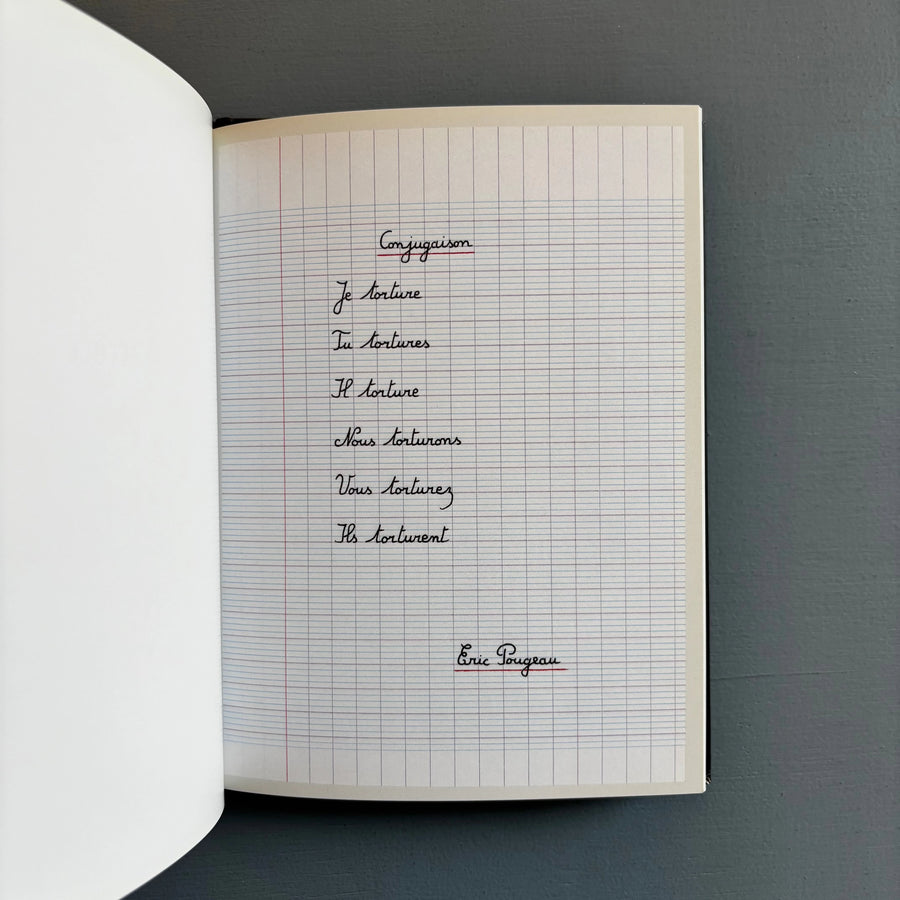 Conjugaison
Je torture
Tu tortures
Il torture
Nous torturons
Vous torturez
Ils torturent
Eric Pougeau